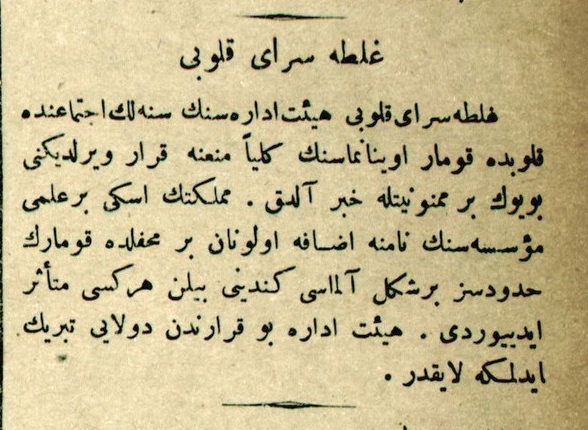 غلطه سرای قلوبی
غلطه سرای قلوبی هیئت اداره سنك سنه لك اجتماعنده
قلوبده قومار اوینانماسنك كلیاً منعنه قرار ویرلدیكنی
بویوك بر ممنونیتله خبر آلدق . مملكتك اسكی بر علمی
مؤسسه سنك نامنه اضافه اولونان بر محفلده قومارك
حدودسز برشكل آلماسی كندینی بیلن هركسی متأثر
ایدییوردی . هیئت اداره بو قرارندن دولایی تبریك
ایدلمكه لایقدر .